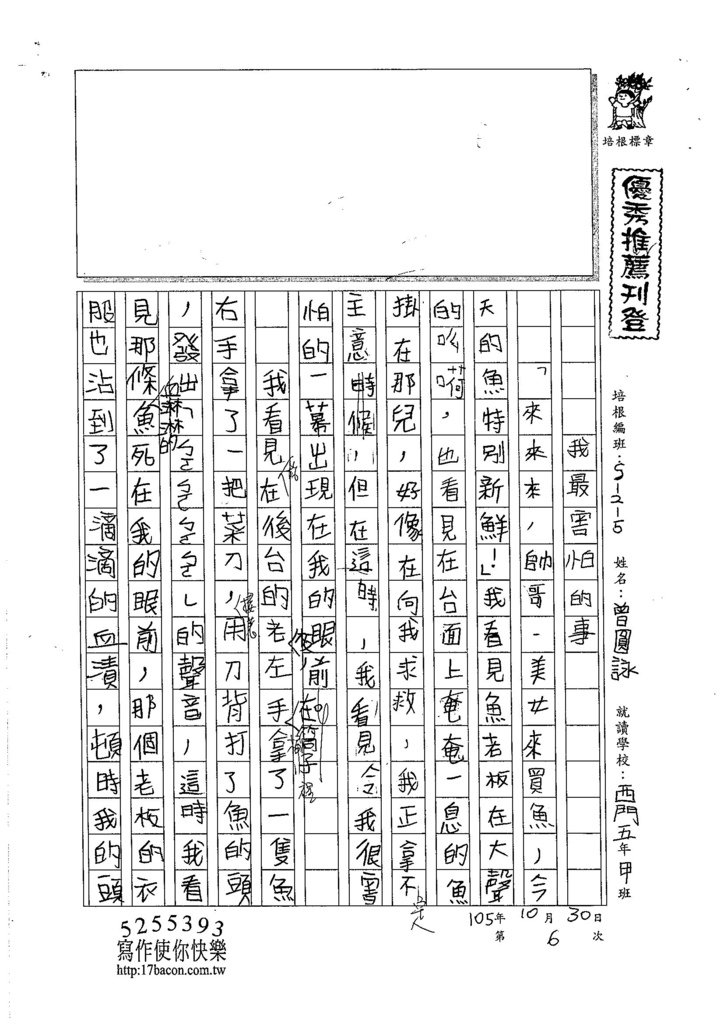 培根標章
優秀推薦刊登
培根編班：5-2-5 姓名：曾圓詠 就讀學校：西門五年甲班
105年10月30日
第6次
我最害怕的事
「來來來，帥哥、美女來買魚，今
天的魚特別新鮮！」我看見魚老板在大聲
的吆喝，也看見在台面上奄奄一息的魚
掛在那兒，好像在向我求救，我正拿不
主意時候，但在這時，我看見令我很害
怕的一幕出現在我的眼前
我看見在後台的老左手拿了一隻魚
右手拿了一把菜刀，用刀背打了魚的頭
，發出「ㄆㄆㄆ」的聲音，這時我看
見那條魚血淋淋的死在我的眼前，那個老板的衣
服也沾到了一滴滴的血漬，頓時我的頭
5255393
寫作使你快樂
http:17bacon.com.tw